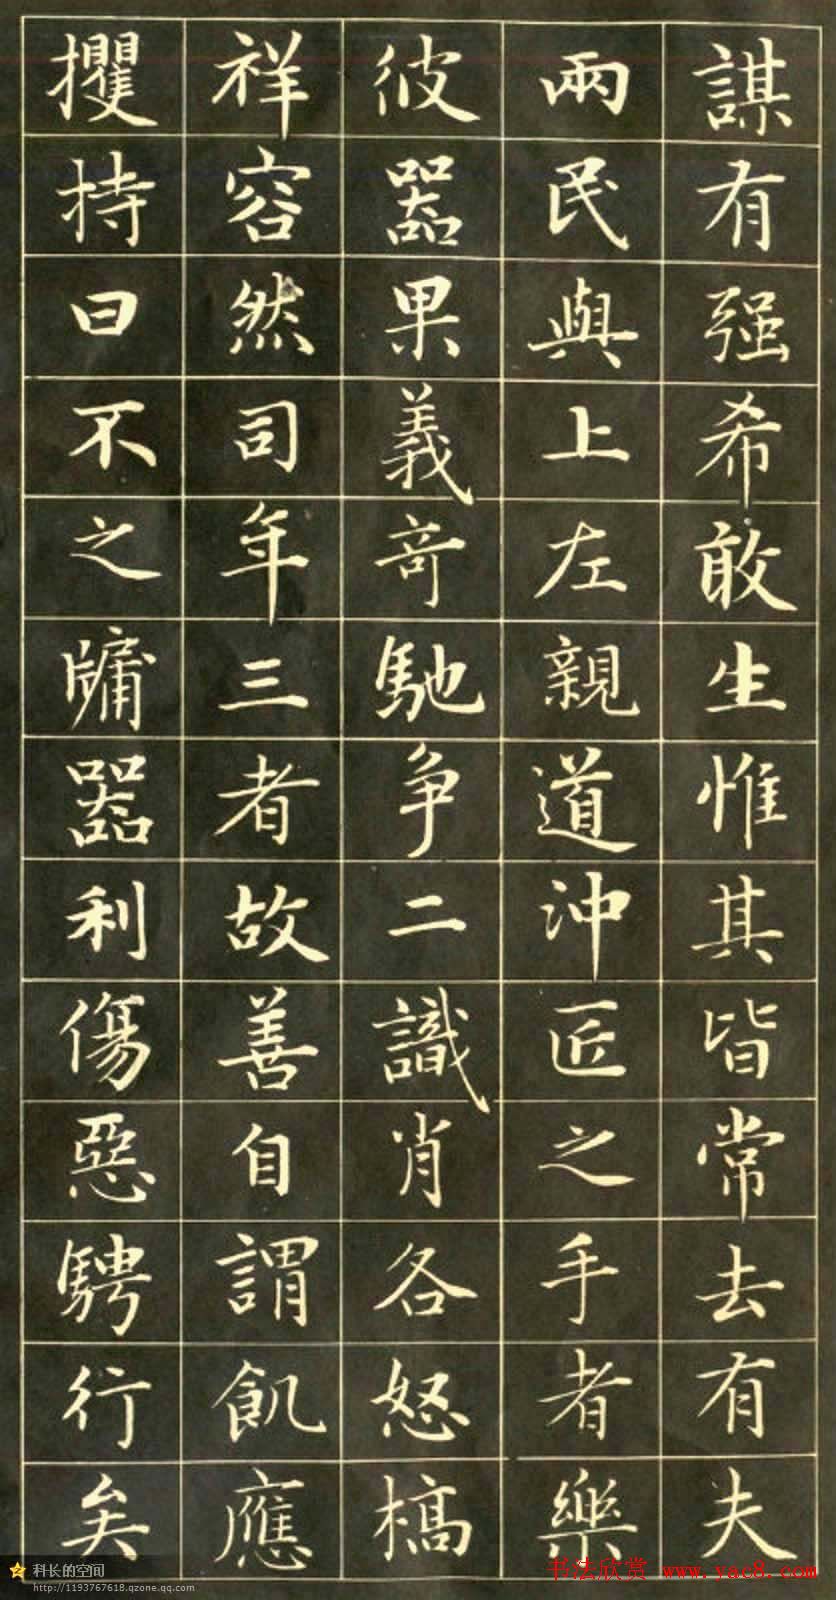 謀有强希敢生惟其皆常去有夫
兩民與上左親道沖匠之手者樂
彼器果義奇馳爭二識肖各怒槁
祥容然司年三者故善自謂飢應
攫持曰不之牗器利傷惡騁行矣
科长的空间
http://1193767618.qzone.qq.com
书法欣赏 www.yac8.com